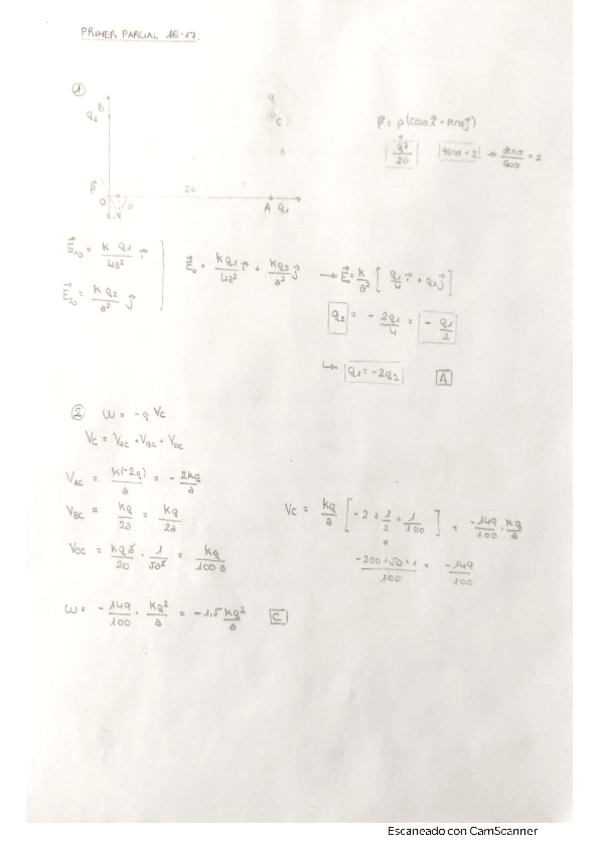 PRIMER PARCIAL 16-17.
①
B
q₂
C
P⃗
O
α
2a
A q₁
P⃗ = p(cosα i⃗ - senα j⃗)
qa/20 |tanα = 2| → senα/cosα = 2
E⃗₁₀ = K q₁/4a² i⃗
E⃗₂₀ = K q₂/a² j⃗
E⃗₀ = K q₁/4a² i⃗ + K q₂/a² j⃗ → E⃗ = K/a² [ q₁/4 i⃗ + q₂ j⃗ ]
q₂ = - 2q₁/4 = - q₁/2
↳ q₁ = -2q₂ A
② W = -q Vc
Vc = VAC + VBC + VOC
VAC = K(-2q)/a = - 2Kq/a
VBC = Kq/2a = Kq/2a
VOC = Kqa/20 · 1/5a² = Kq/100a
Vc = Kq/a [ -2 + 1/2 + 1/100 ] = -149/100 · Kq/a
-200+50+1/100 = -149/100
W = - 149/100 · Kq²/a = -1,5 Kq²/a C
Escaneado con CamScanner